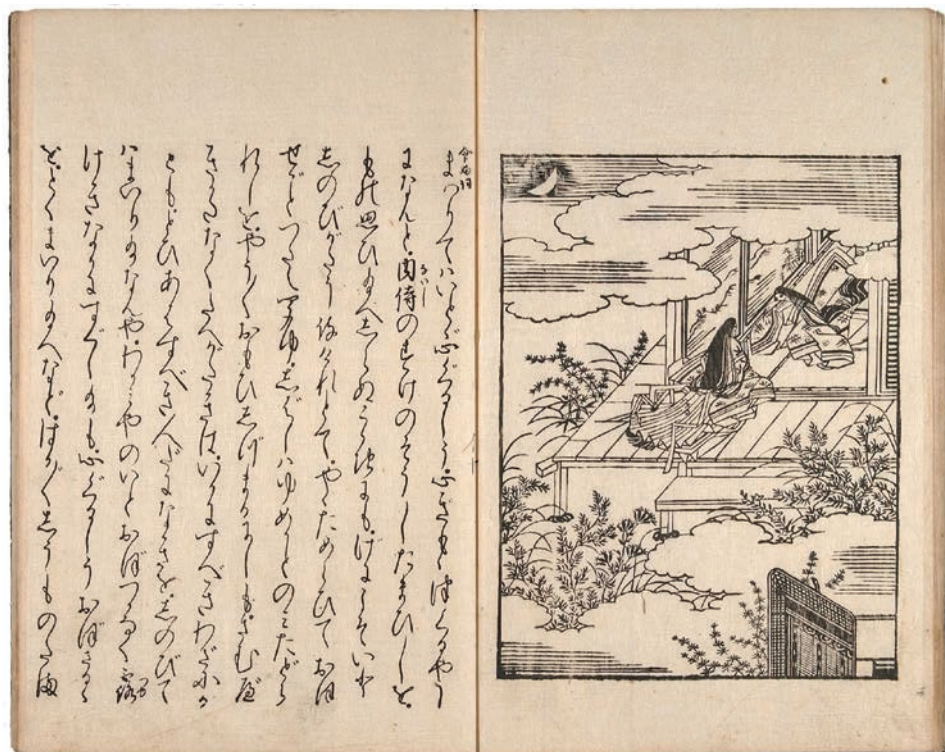 命婦詞
まいりてハいとゞ心ぐるしう心ぎももつくるやう
になんと内侍のすけのそうしたまひしを
もの思ひ給へしらぬ心ちにもげにこそいと
しのびがたう侍けれとてやゝためらひておほ
せごとつたへ聞ゆしばしハゆめかとのミたどら
れしをやう〱おもひしづまるにしもさむべ
きかたなくたへがたきはいかにすべきわざにか
ともとひあハすべき人だになきをしのびて
ハまいり給なんやわか宮のいとおぼつかなく露
けきなかにすぐし給も心ぐるしうおぼさるゝ
をとくまいり給へなどはか〲しうものたま